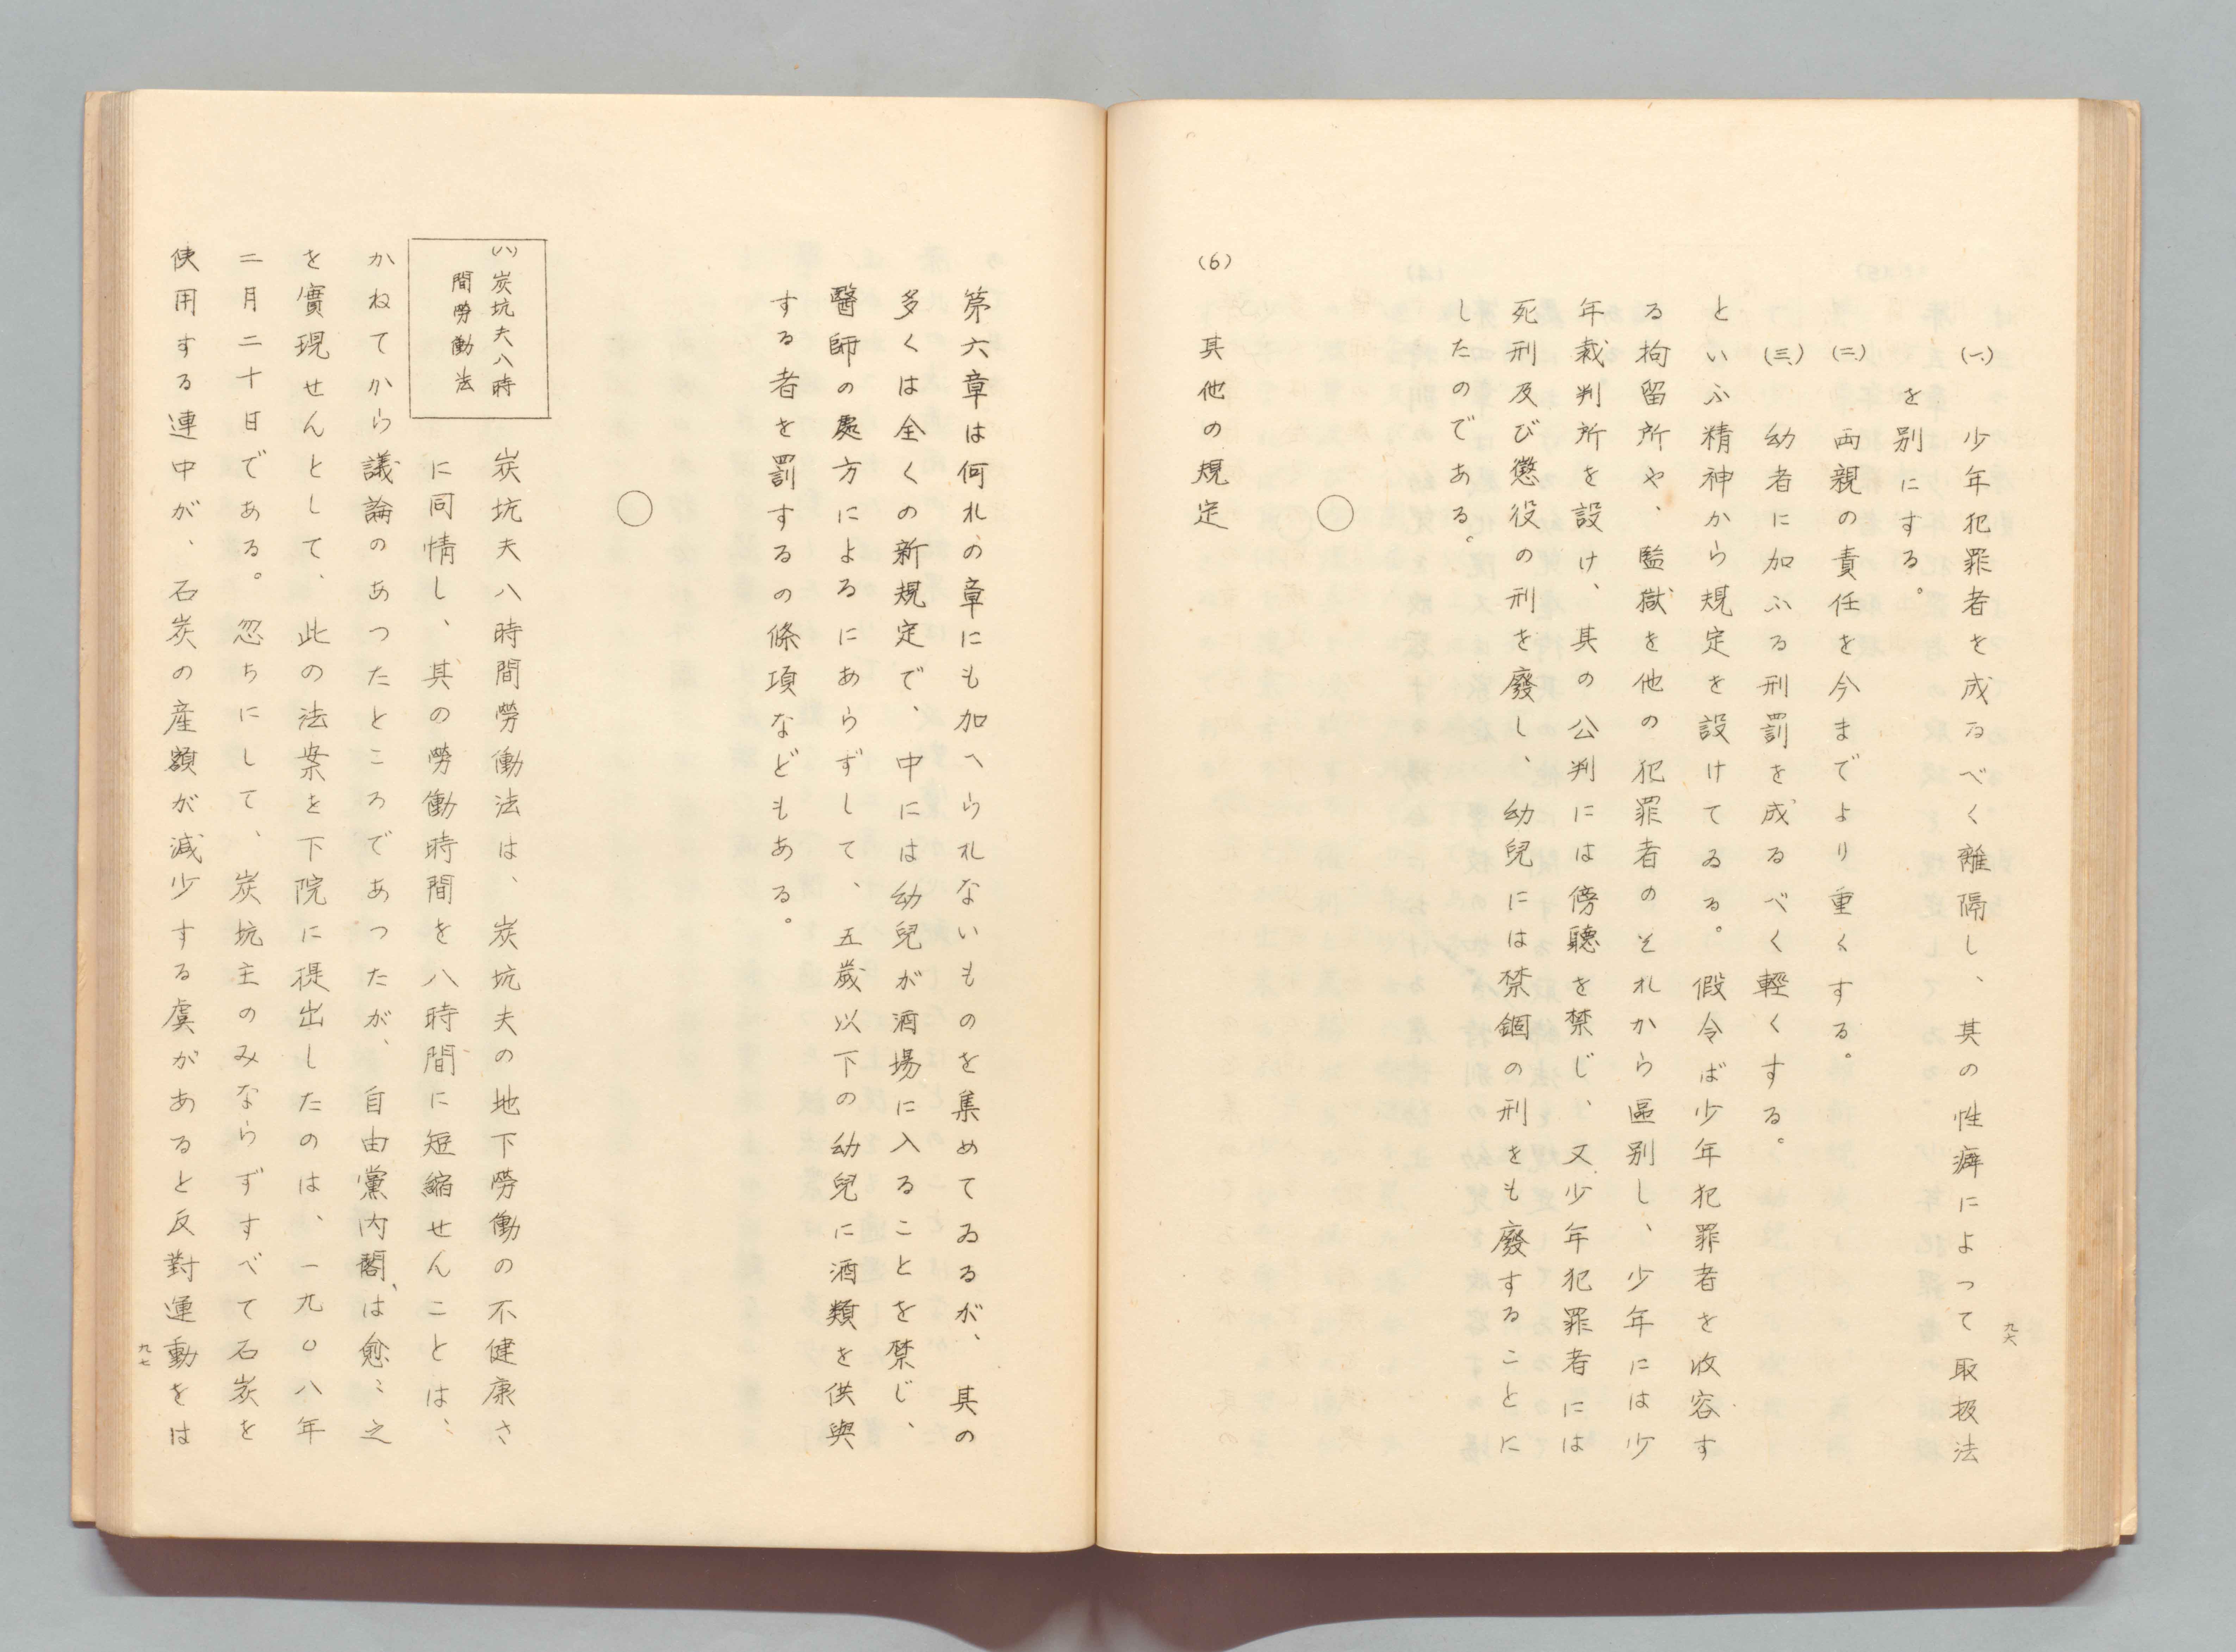 (一) 少年犯罪者を成るべく離隔し、其の性癖によって取扱法
を別にする。
(二) 両親の責任を今までより重くする。
(三) 幼者に加ふる刑罰を成るべく輕くする。
といふ精神から規定を設けてゐる。假令ば少年犯罪者を收容す
る拘留所や、監獄を他の犯罪者のそれから區别し、少年には少
年裁判所を設け、其の公判には傍聽を禁じ、又少年犯罪者には
死刑及び懲役の刑を廢し、幼兒には禁錮の刑をも廢することに
したのである。
○
(6) 其他の規定
九六
第六章は何れの章にも加へられないものを集めてゐるが、其の
多くは全くの新規定で、中には幼兒が酒場に入ることを禁じ、
醫師の處方によるにあらずして、五歲以下の幼兒に酒類を供與
する者を罰するの條項などもある。
○
(八) 炭坑夫八時
間勞働法
炭坑夫八時間勞働法は、炭坑夫の地下勞働の不健康さ
に同情し、其の勞働時間を八時間に短縮せんことは、
かねてから議論のあつたところであつたが、自由黨內閣は愈〻之
を實現せんとして、此の法案を下院に提出したのは、一九〇八年
二月二十日である。忽ちにして、炭坑主のみならずすべて石炭を
使用する連中が、石炭の産額が減少する虞があると反對運動をは
九七